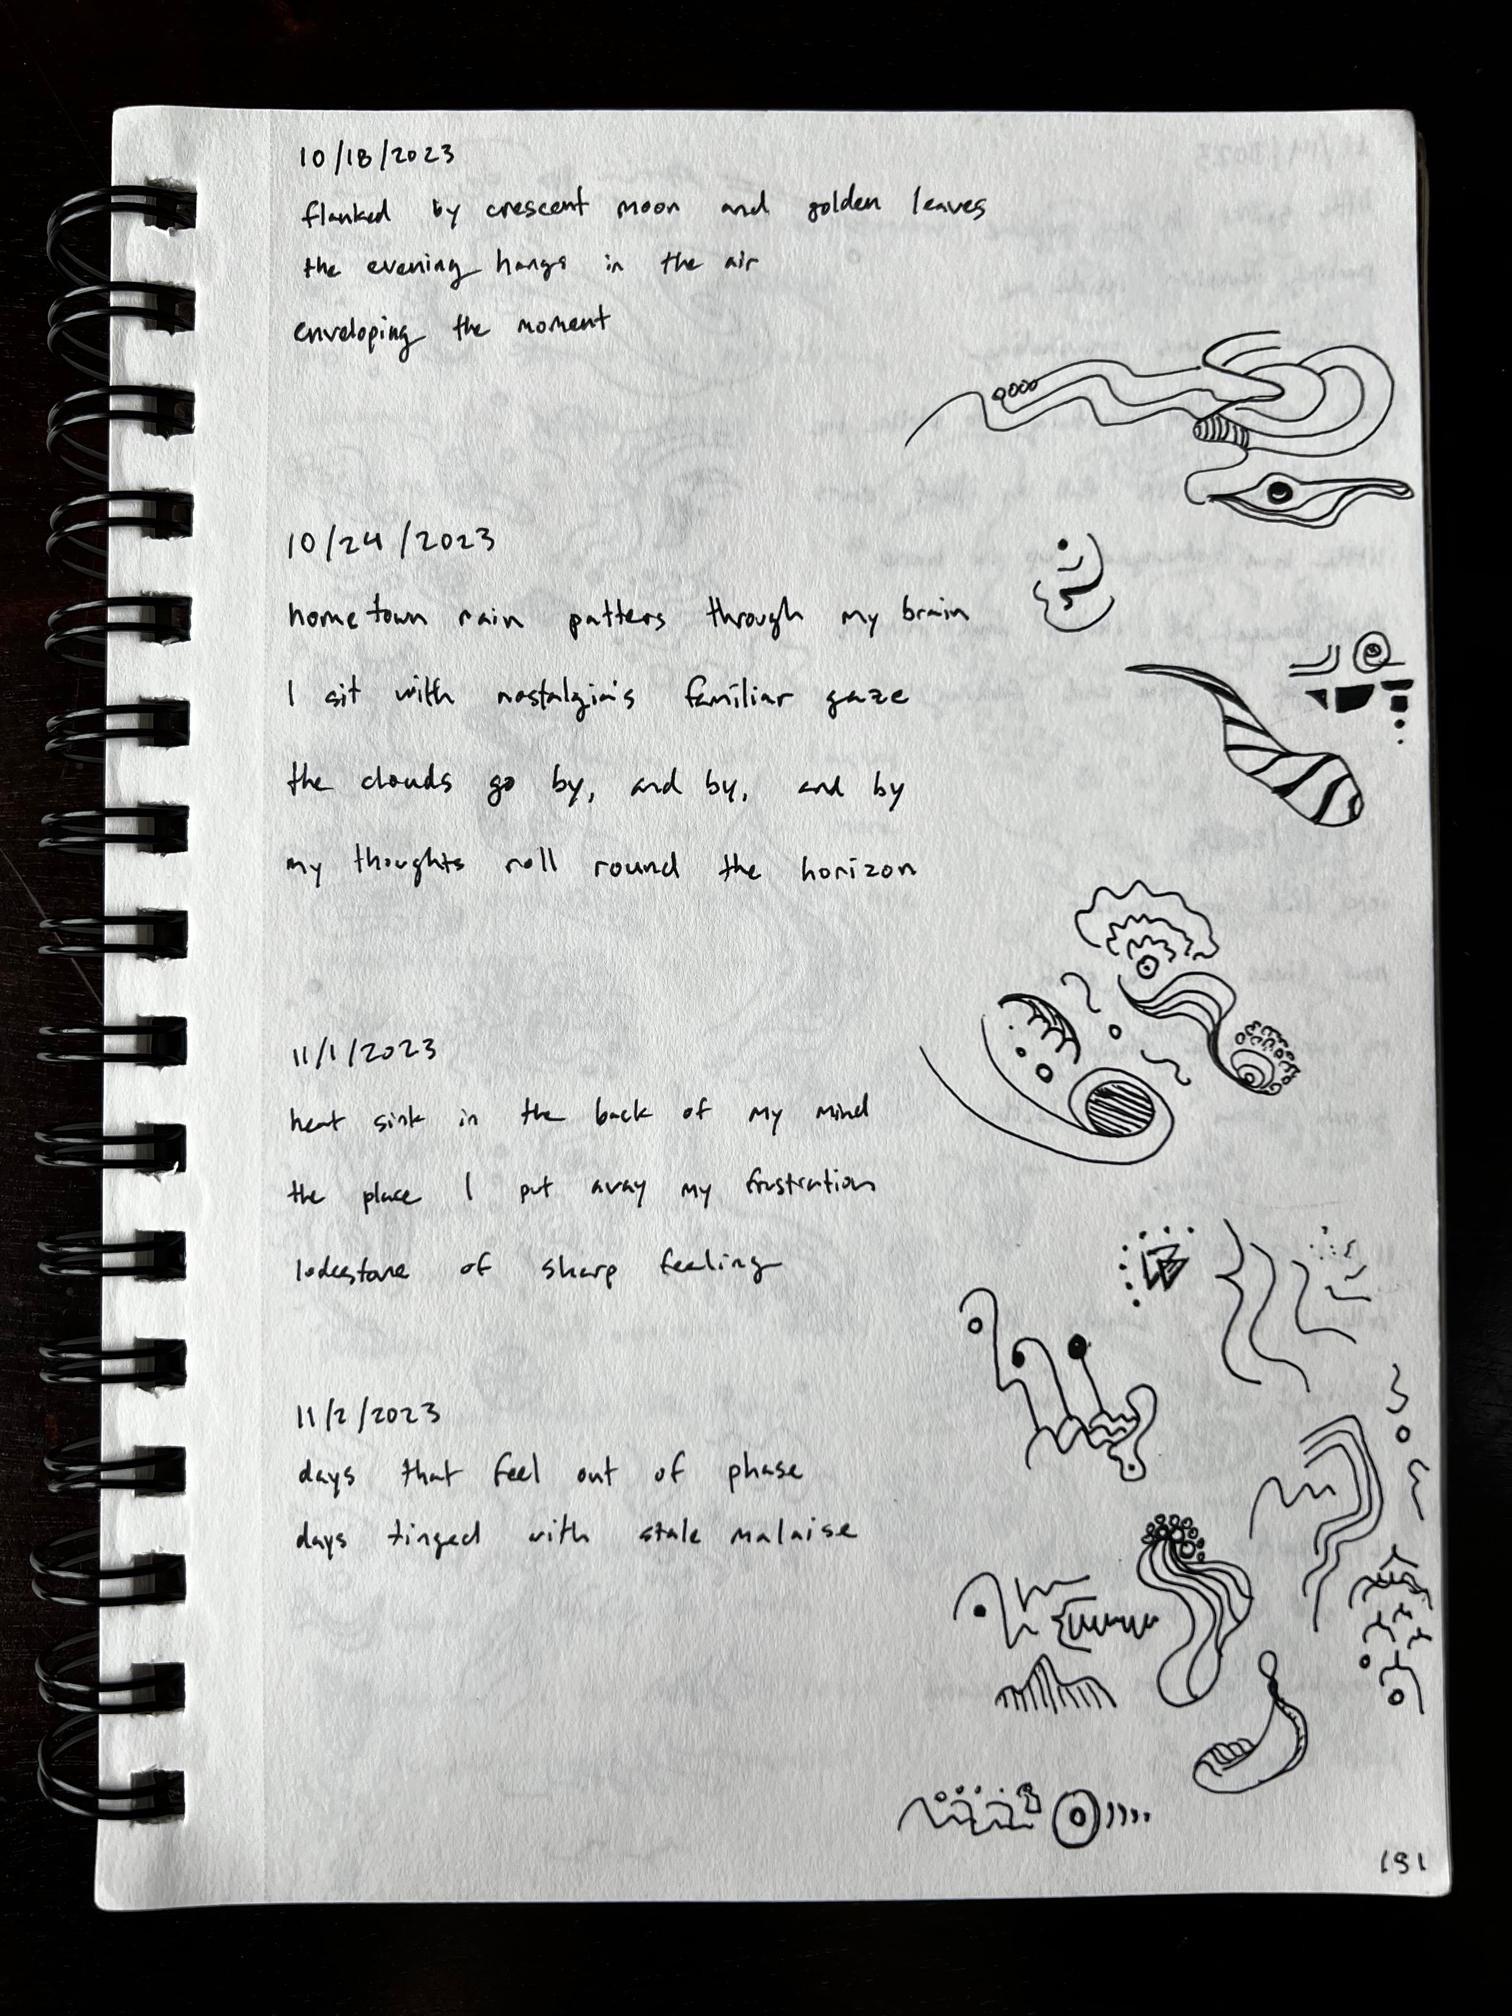 10/18/2023
flanked by crescent moon and golden leaves
the evening hangs in the air
enveloping the moment
10/24/2023
hometown rain patters through my brain
I sit with nostalgia's familiar gaze
the clouds go by, and by, and by
my thoughts roll round the horizon
11/1/2023
heat sink in the back of my mind
the place I put away my frustration
lodestone of sharp feeling
11/2/2023
days that feel out of phase
days tinged with stale malaise